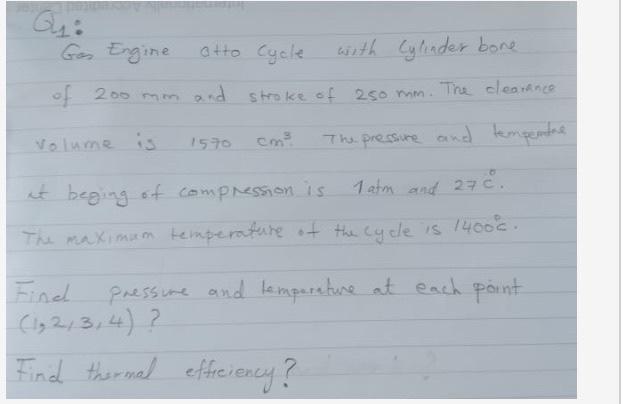 Q1:
Gas Engine otto cycle with Cylinder bone
of 200 mm and stroke of 250 mm. The clearance
volume is 1570 cm³. The pressure and temperature
at beging of compression is 1 atm and 27 c°.
The maximum temperature of the cycle is 1400°c.
Find pressure and temperature at each point
(1,2,3,4) ?
Find thermal efficiency?